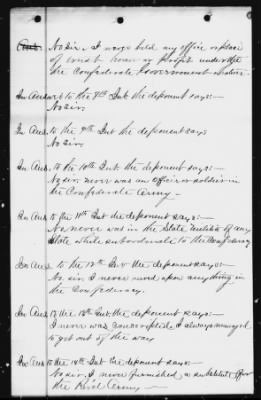 Ans. No sir. I never held any office or place
of trust honor or profit under the
the Confederate Government
In Ans. to the 8th Int the deponent says:—
No sir.
In Ans. to the 9th Int the deponent says
No sir.
In Ans. to the 10th Int. the deponent says:—
No sir, never was an officer or soldier in
the Confederate Army.—
In Ans to the 11th Int the deponent says:—
No never was in the State Militia of any
State while subordinate to the Confederacy
In Ans to the 12th Int the deponent says:—
No sir. I never lived upon anything in
the Confederacy.
In Ans to the 13th Int the deponent says:—
I never was Conscripted, I always managed
to get out of the way
In Ans to the 14th Int the deponent says:—
No sir. I never furnished a substitute for
the Rebel Army—